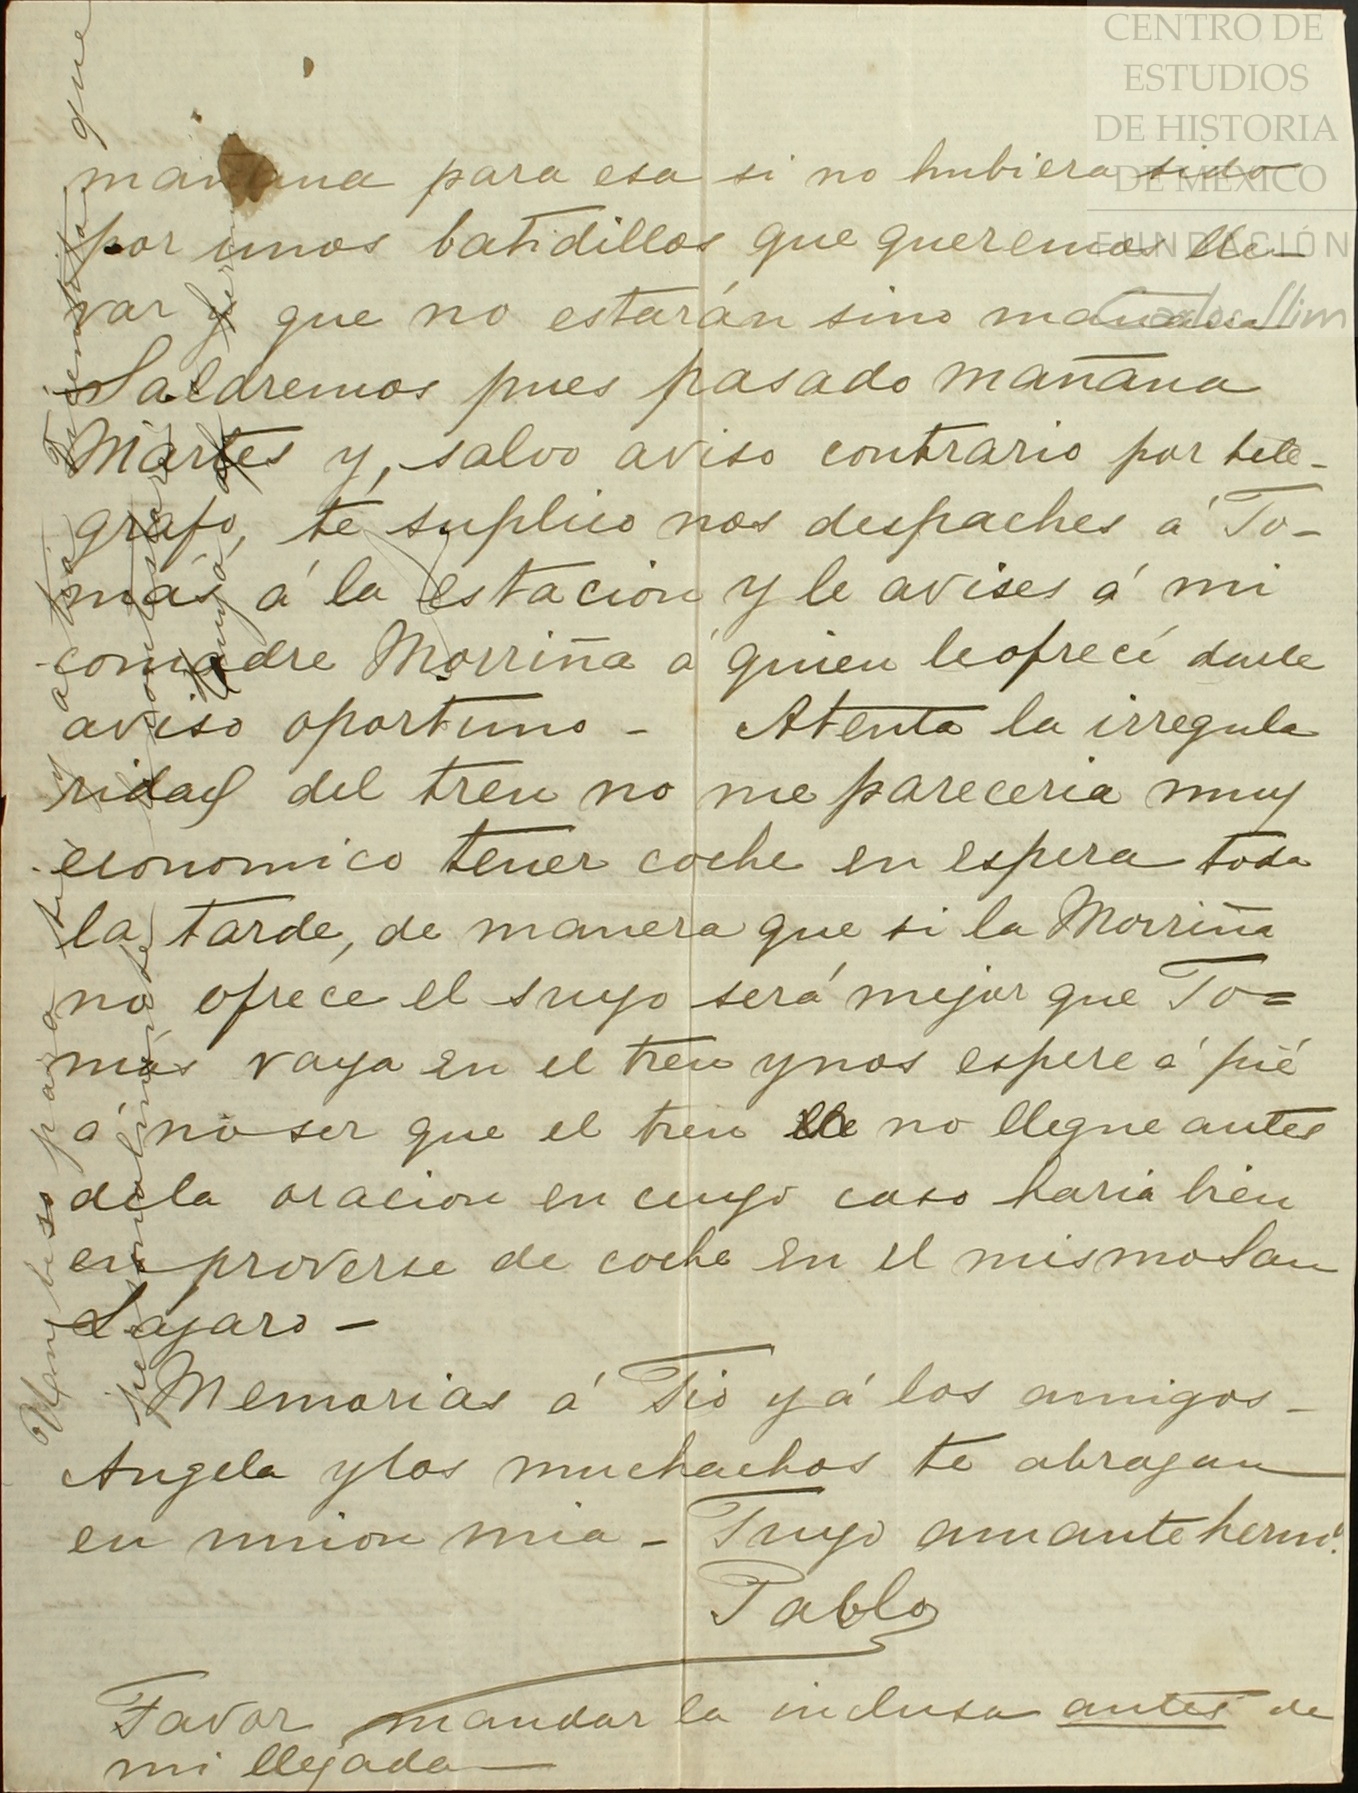 CENTRO DE
ESTUDIOS
DE HISTORIA
DE MÉXICO
FUNDACIÓN
Carlos Slim
mañana para esa si no hubiera sido
por unos batidillos que queremos lle-
var y que no estarán sino mañana
Saldremos pues pasado mañana
Martes y, salvo aviso contrario por tele-
grafo, te suplico nos despaches á To-
más á la estacion y le avises á mi
comadre Morriña á quien le ofrecí darle
aviso oportuno - Atenta la irregula
ridad del tren no me pareceria muy
economico tener coche en espera toda
la tarde, de manera que si la Morriña
no ofrece el suyo será mejor que To=
más vaya en el tren y nos espere á pié
á no ser que el tren no llegue antes
de la oracion en cuyo caso haria bien
en proverse de coche en el mismo San
Lázaro -
Memorias á Tio y á los amigos -
Angela y los muchachos te abrazan
en union mia - Tuyo amante herm.º
Pablo
Favor mandar la inclusa antes de
mi llegada
Many besos para ti y a tia que
personalmente
Tuya